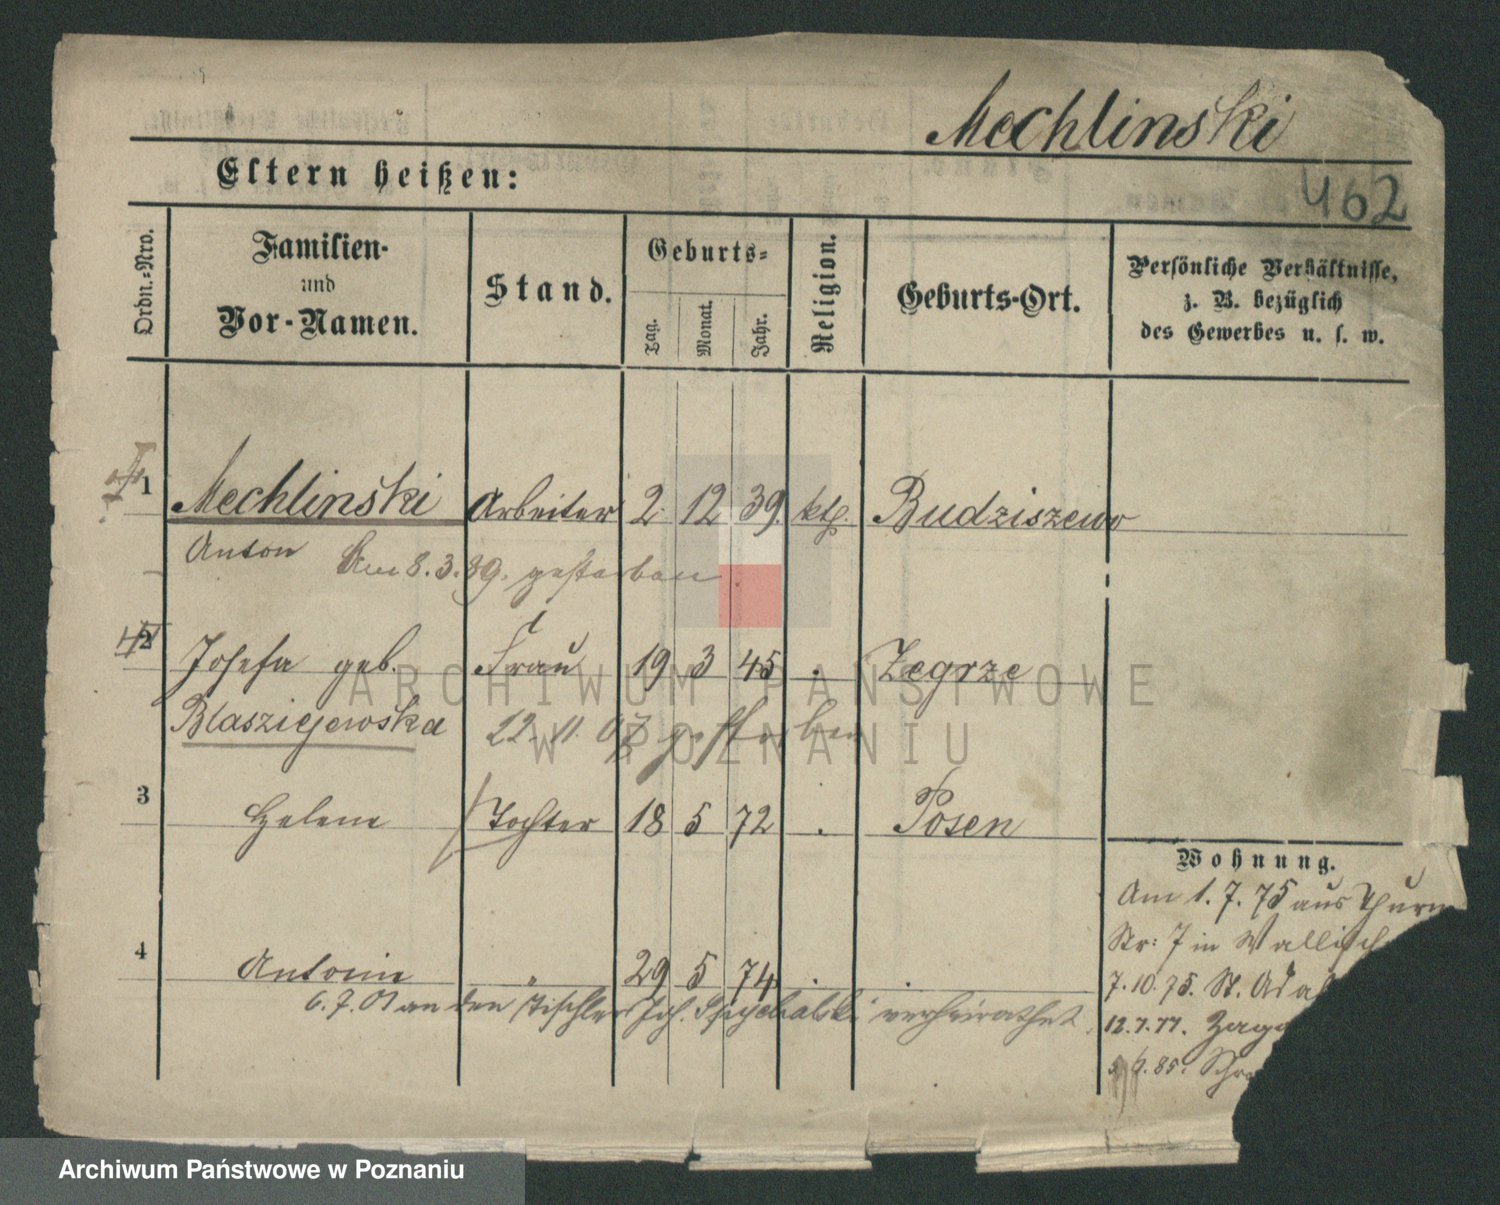 Mechlinski
Eltern heißen:
462
Ordn.-Nro.
Familien-
und
Vor-Namen.
Stand.
Geburts-
Tag.
Monat.
Jahr.
Religion.
Geburts-Ort.
Persönliche Verhältnisse,
z. B. bezüglich
des Gewerbes u. s. w.
1 Mechlinski Arbeiter 2 12 39. kth. Budziszewo
Anton Am 8.3.89. gestorben
2 Josefa geb. Frau 19 3 45 . Zegrze
Blasziejewska 22.11.07 gestorben
3 Helene Tochter 18 5 72 . Posen
Wohnung.
Am 1.7.75 aus Thurm
Str: 7 in Wallisch
4 Antonie " 29 5 74 . .
7.10.75. St. Adal
6.7.01 an den Tischler Joh. verheirathet.
12.7.77. Zag
85. Schr
ARCHIWUM PAŃSTWOWE
W POZNANIU
Archiwum Państwowe w Poznaniu